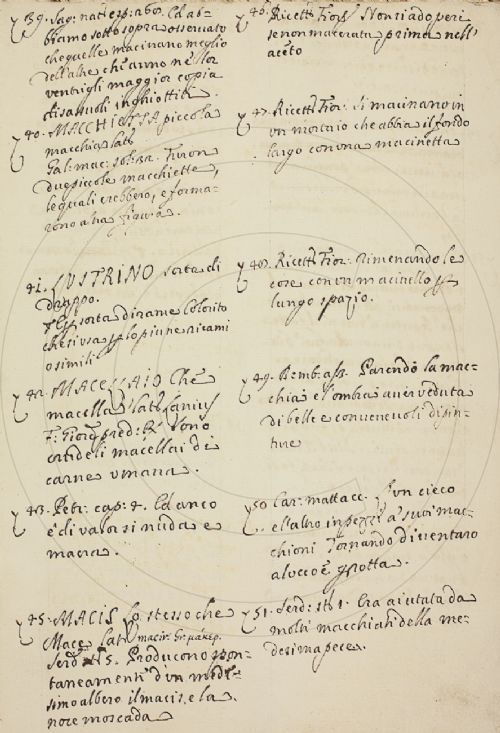 39. Sag: nat: esp: 260. Ed ab-
biamo sotto sopra osservato
che quelle macinano meglio
dell'altre ch'anno ne' lor
ventrigli maggior copia
di sassuoli inghiottiti.
40. MACCHIETTA piccola
macchia lat:
Gal: mac: sol: Furon
due piccole macchiette,
le quali crebbero, e forma-
rono altra figura.
41. LUSTRINO sorta di
drappo.
sorta di rame colorito
che si usa per lo più ne ricami
o simili
42. MACELLAIO Che
macella lat: Lanius
F: Giord: pred: R Sono
crudeli macellai di
carne umana.
43. Petr: cap: 4. Ed anco
è di valor si nuda e
macra.
45. MACIS lo stesso che
Mace lat: macir. Gr: μακερ.
Serd: st: 5. Producono spon-
taneamenti d'un mede-
simo albero il macis, e la
noce moscada
46. Ricett: Fior: Non si adoperi
se non macerata prima nell'
aceto
47. Ricett: Fior: Si macinano in
un mortaio che abbia il fondo
largo con una macinetta
48. Ricett: Fior: Rimenando le
cose con un macinello per
lungo spazio.
49. Bemb: ass: Parendo la mac-
chia e l'ombra aver veduta
di belle e convenevoli dipin-
ture
50 Car: mattacc: Sun cieco
e l'altro in pezzi a' suoi mac-
chioni Tornando diventaro
alocco e grotta.
51. Serd: st: 1. Era aiutata da
molti macchiati della me-
desima pece.